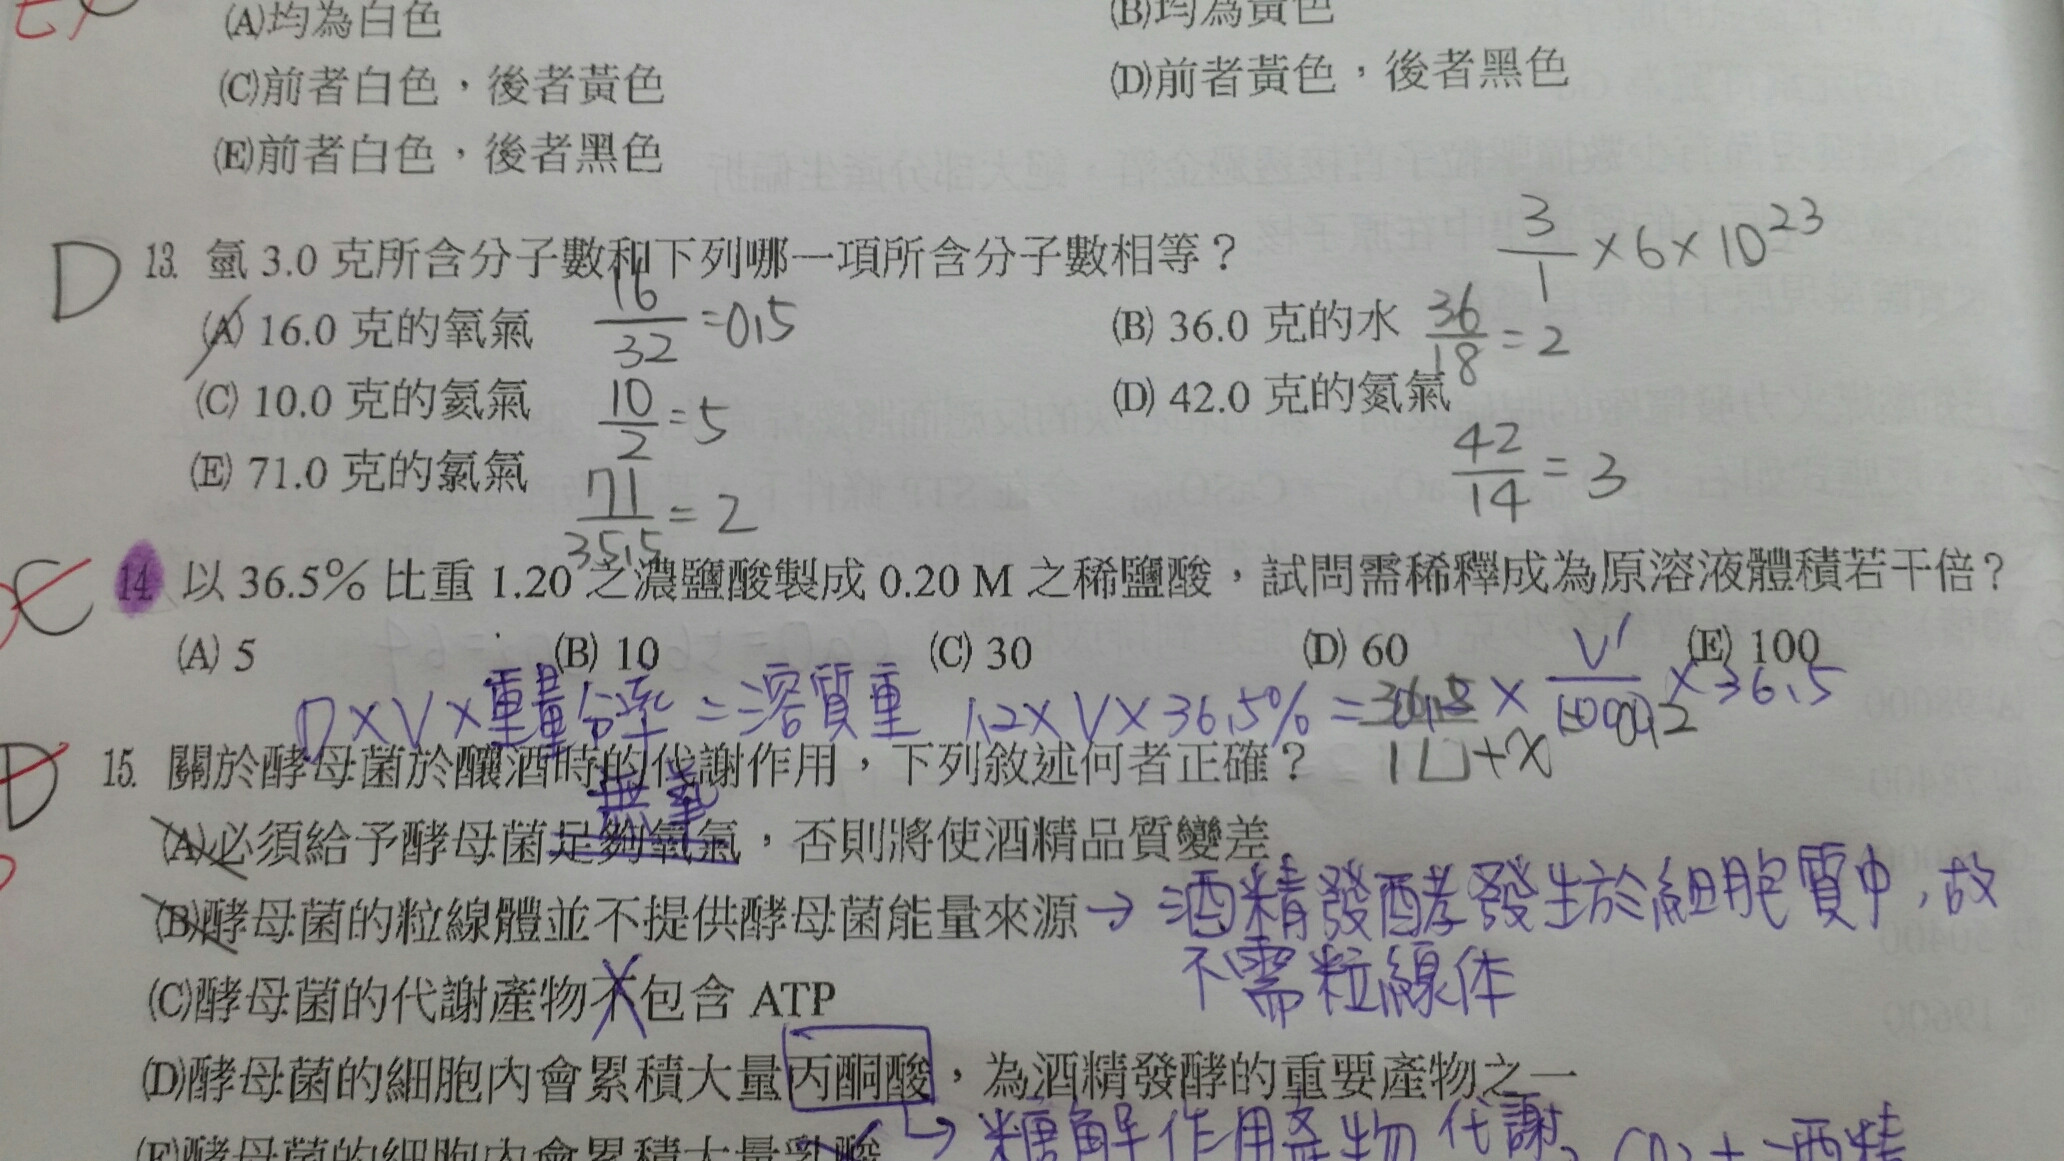 (A)均為白色
(B)均為黃色
(C)前者白色，後者黃色
(D)前者黃色，後者黑色
(E)前者白色，後者黑色
D 13. 氫 3.0 克所含分子數和下列哪一項所含分子數相等？
3/1 × 6 × 10^23
(A) 16.0 克的氧氣 16/32 = 0.5
(B) 36.0 克的水 36/18 = 2
(C) 10.0 克的氦氣 10/2 = 5
(D) 42.0 克的氮氣 42/14 = 3
(E) 71.0 克的氯氣 71/35.5 = 2
C 14. 以 36.5% 比重 1.20 之濃鹽酸製成 0.20 M 之稀鹽酸，試問需稀釋成為原溶液體積若干倍？
(A) 5 (B) 10 (C) 30 (D) 60 (E) 100
D×V×重量百分率=溶質重 1.2×V×36.5% = × V'/1000 × 36.5
D 15. 關於酵母菌於釀酒時的代謝作用，下列敘述何者正確？
無氧
(A)必須給予酵母菌足夠氧氣，否則將使酒精品質變差
(B)酵母菌的粒線體並不提供酵母菌能量來源 → 酒精發酵發生於細胞質中，故
不需粒線体
(C)酵母菌的代謝產物不包含 ATP
(D)酵母菌的細胞內會累積大量丙酮酸，為酒精發酵的重要產物之一
(E)酵母菌的細胞內會累積大量乳酸
糖解作用產物 代謝 CO2 + 酒精